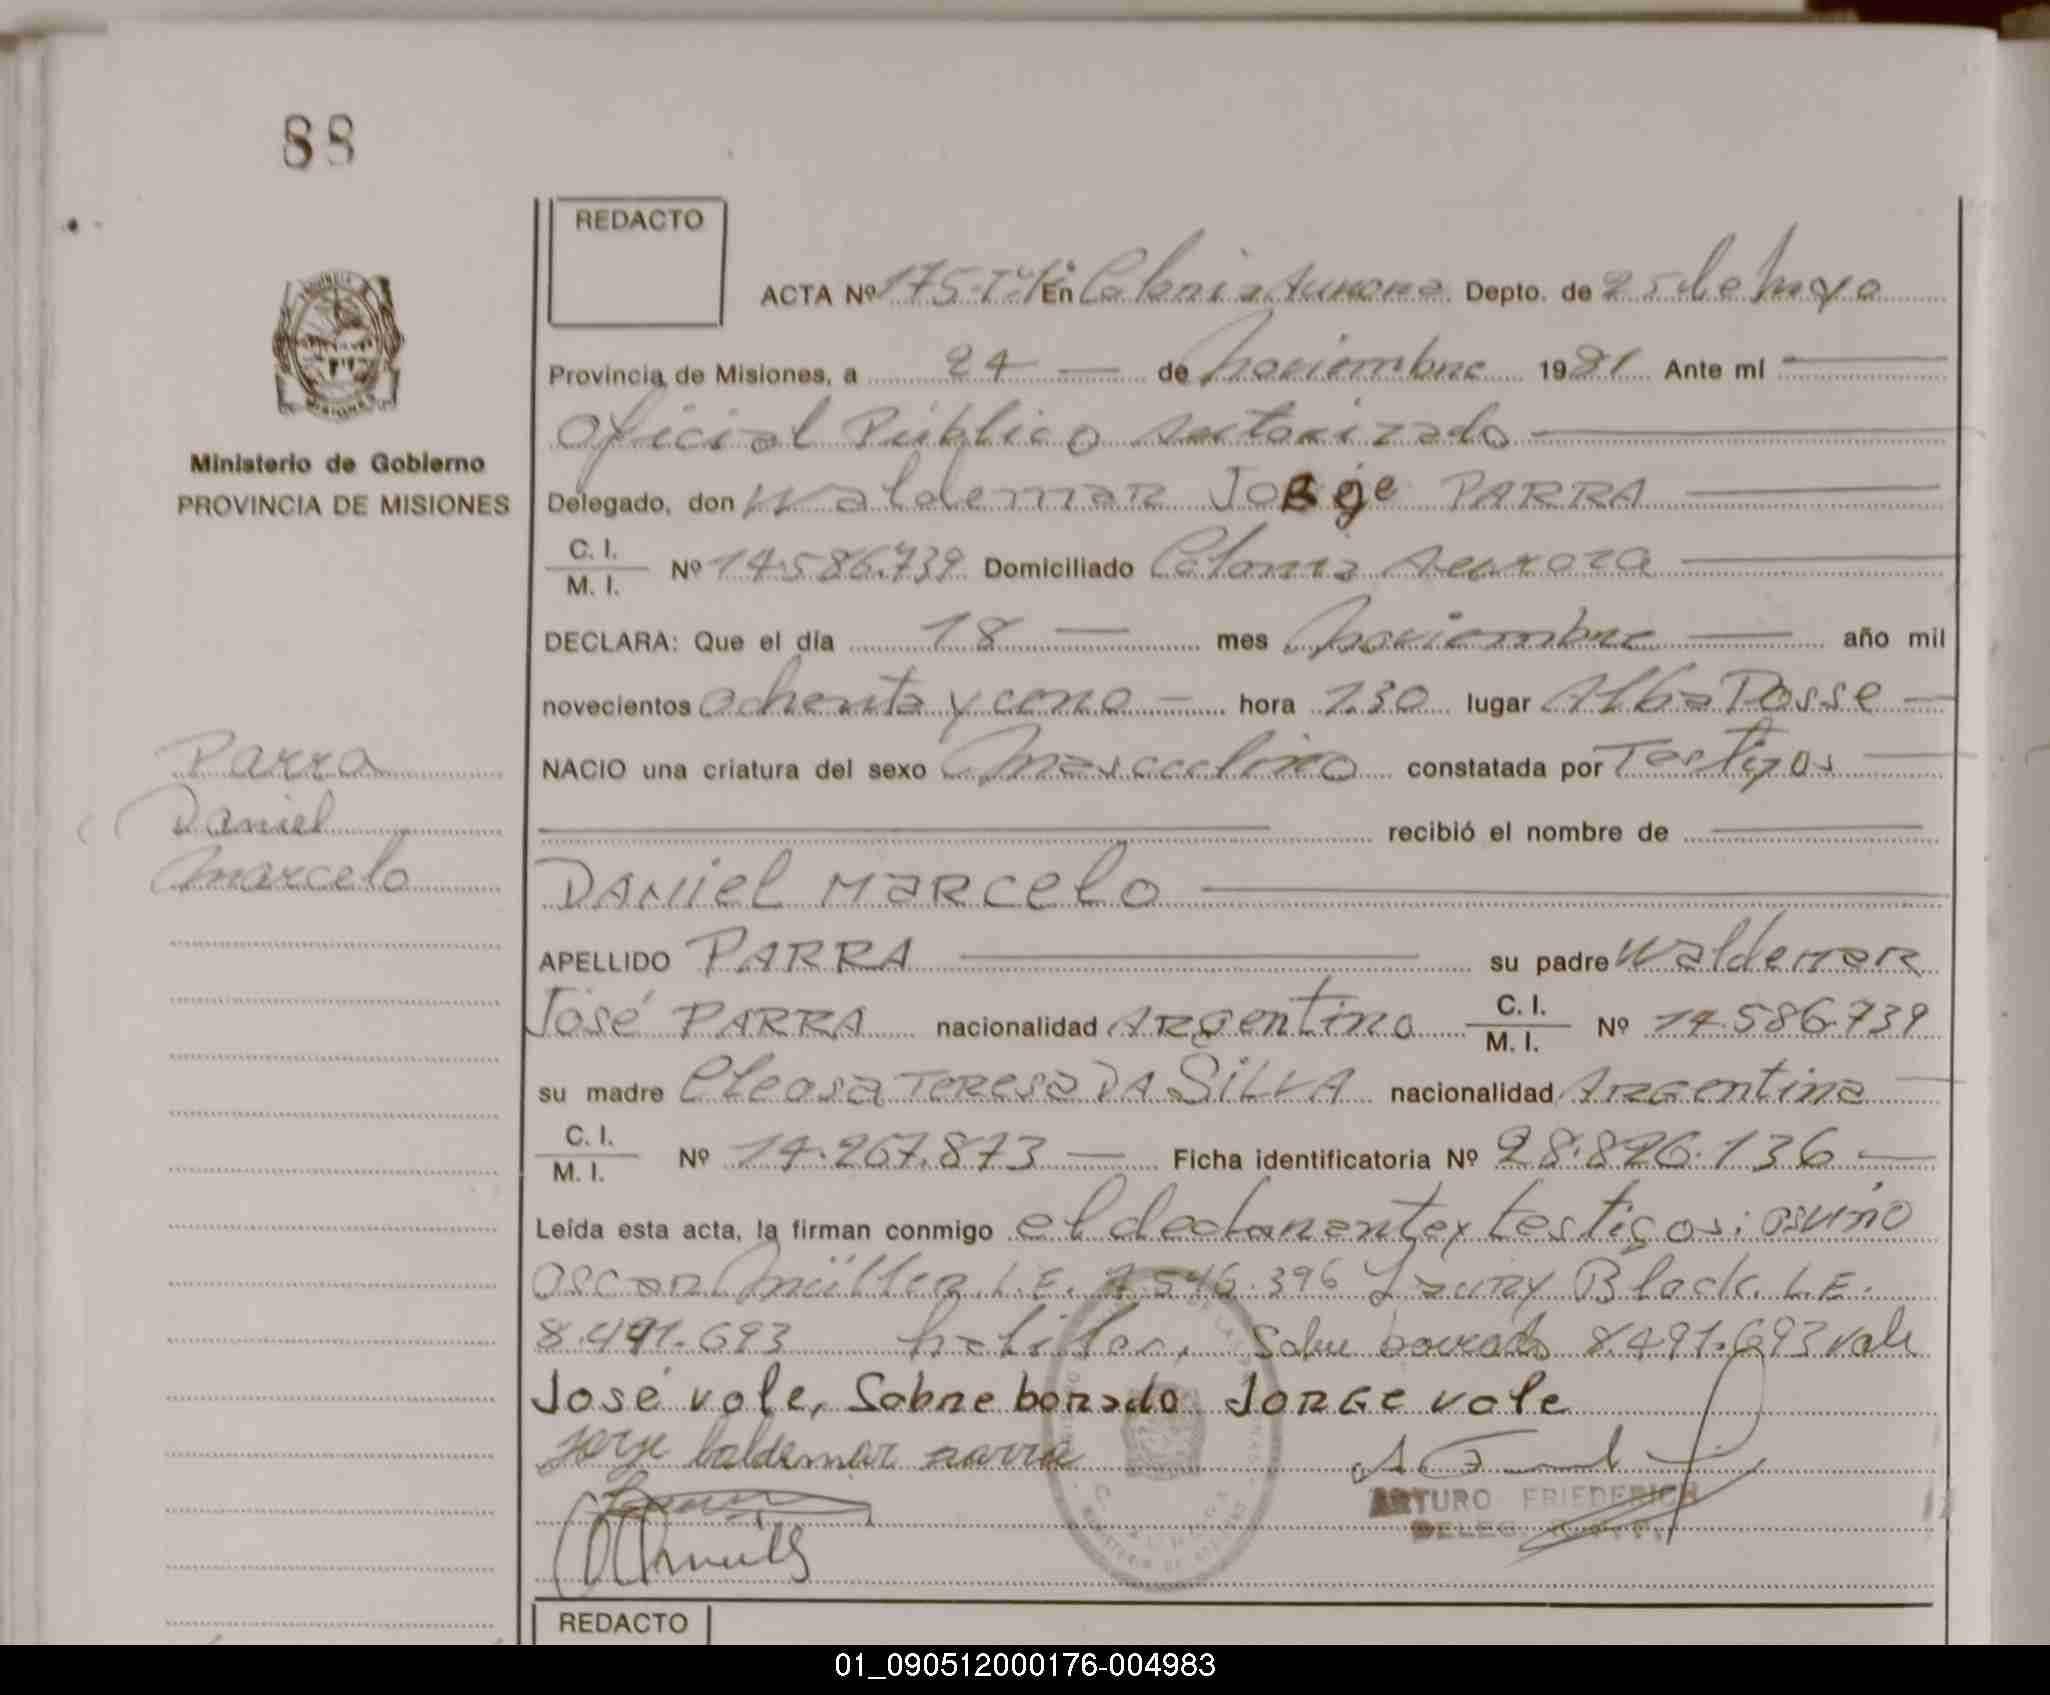 88
REDACTO
ACTA Nº 175-Tº1º En Colonia Aurora Depto. de 25 de Mayo
Provincia de Misiones, a 24 — de Noviembre 1981 Ante mí
Oficial Público Autorizado
Ministerio de Gobierno
PROVINCIA DE MISIONES
Delegado, don Waldemar Jorge PARRA
C. I.
M. I. Nº 14.586.739 Domiciliado Colonia Aurora
DECLARA: Que el día 18 — mes Noviembre — año mil
novecientos ochenta y uno — hora 1.30 lugar Alba Posse —
NACIO una criatura del sexo Masculino constatada por Testigos
Parra
Daniel
Marcelo
recibió el nombre de
DANIEL MARCELO
APELLIDO PARRA su padre Waldemar
José PARRA nacionalidad Argentino C. I.
M. I. Nº 14.586.739
su madre Cleosa Teresa DA SILVA nacionalidad Argentina
C. I.
M. I. Nº 14.267.873 — Ficha identificatoria Nº 28.826.136 —
Leída esta acta, la firman conmigo el declarante y testigos: osuino
oscar Müller L.E. 7.546.396 y Laury Block. L.E.
8.491.693 habiles, Sobre borrado 8.491.693 vale
José vale, Sobre borrado JORGE vale
Jorge baldemar parra
ARTURO FRIEDERICH
DELEG.
REDACTO
01_090512000176-004983